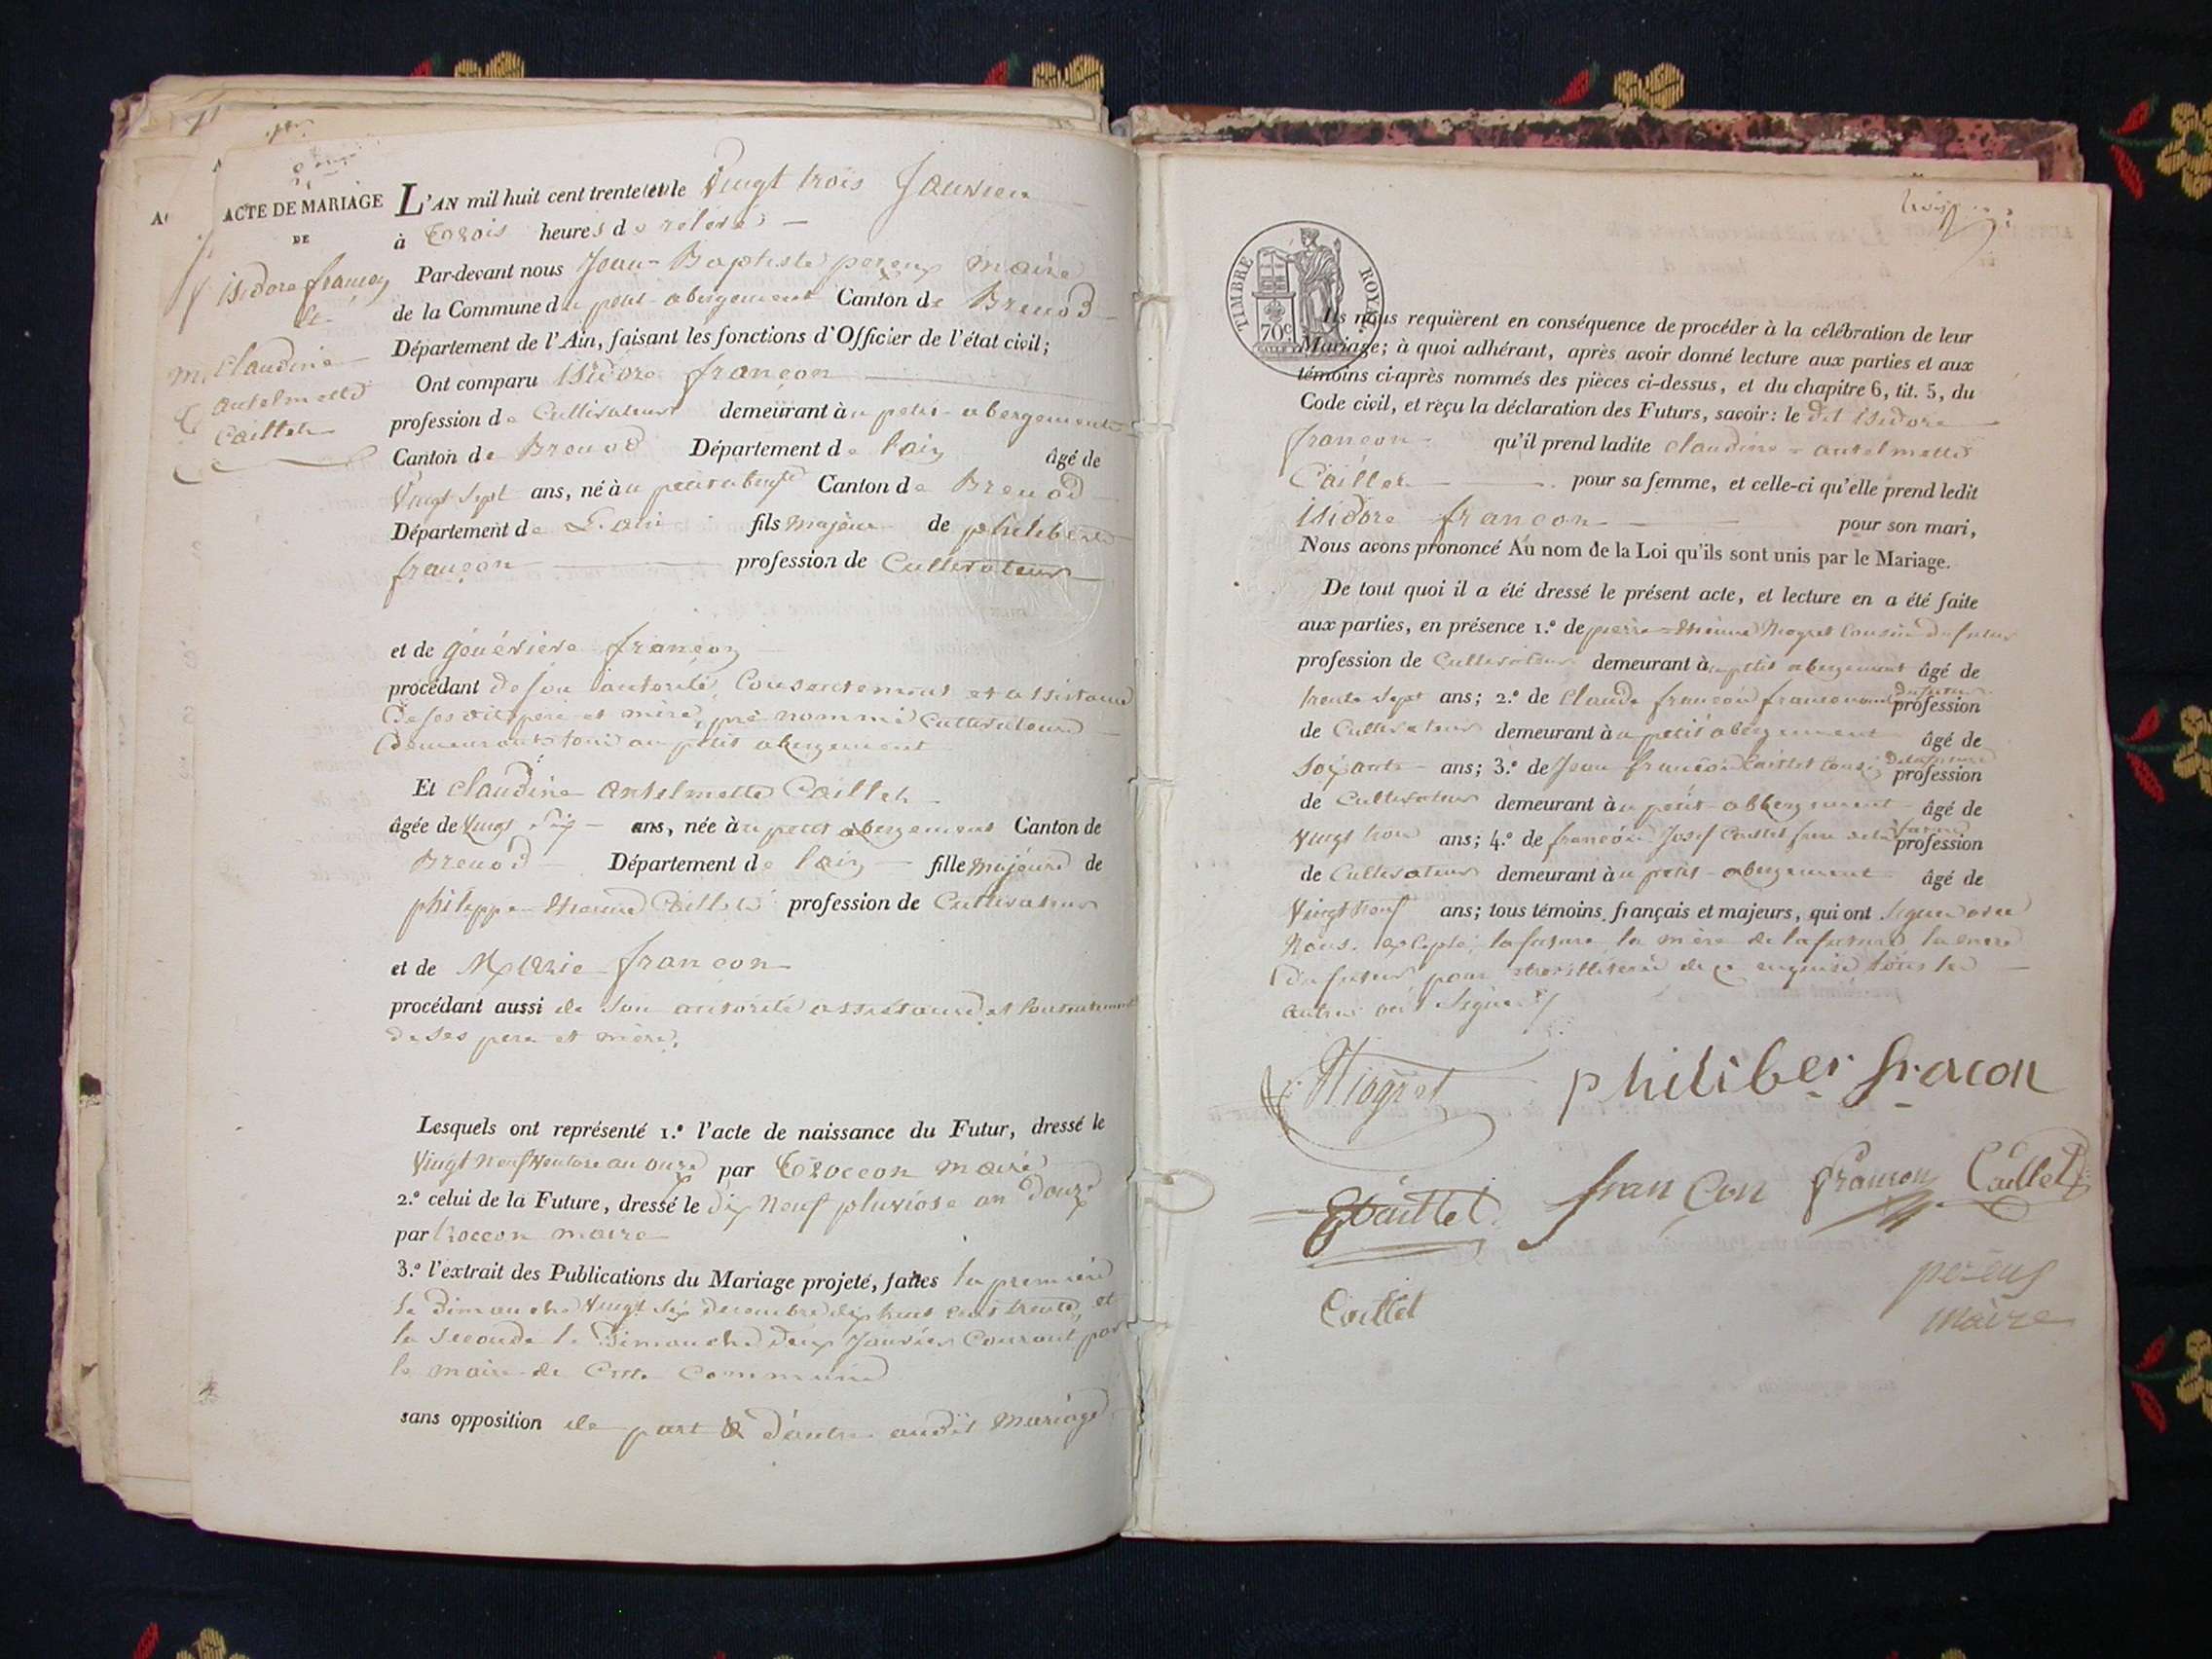 ACTE DE MARIAGE
DE
isidore françon
et
claudine
antelmette
Caillet
L'AN mil huit cent trente et le Vingt trois Janvier
à Trois heures de relevé
Par-devant nous Jean-Baptiste pereux maire
de la Commune du petit-abergement Canton de Brenod
Département de l'Ain, faisant les fonctions d'Officier de l'état civil;
Ont comparu isidore françon
profession de Cultivateur demeurant à u petit-abergement
Canton de Brenod Département de lain âgé de
Vingt sept ans, né à u Canton de Brenod
Département de L'ain fils majeur de philibert
françon profession de Cultivateur
et de généviève françon
procédant de son autorité, Consentement et assistance
de ses dit père et mère, pré nommé Cultivateurs
demeurants tous au petit abergement
Et claudine antelmette Caillet
âgée de Vingt six ans, née à u petit abergement Canton de
Brenod Département de lain fille majeure de
philippe Etienne Caillet profession de Cultivateur
et de Marie françon
procédant aussi de son autorité assistance et Consentement
de ses pere et mère,
Lesquels ont représenté 1.º l'acte de naissance du Futur, dressé le
Vingt neuf Ventose an onze par Troccon maire
2.º celui de la Future, dressé le dix neuf pluviose an douze
par troccon maire
3.º l'extrait des Publications du Mariage projeté, faites la première
le Dimanche Vingt six decembre dix huit cent trente, et
la seconde le Dimanche deux Janvier Courant par
le maire de Cette Commune
sans opposition de part & d'autre audit mariage
TIMBRE ROYAL
70c
Ils nous requièrent en conséquence de procéder à la célébration de leur
Mariage; à quoi adhérant, après avoir donné lecture aux parties et aux
témoins ci-après nommés des pièces ci-dessus, et du chapitre 6, tit. 5, du
Code civil, et reçu la déclaration des Futurs, savoir: le dit isidore
françon qu'il prend ladite claudine = antelmette
Caillet pour sa femme, et celle-ci qu'elle prend ledit
isidore françon pour son mari,
Nous avons prononcé Au nom de la Loi qu'ils sont unis par le Mariage.
De tout quoi il a été dressé le présent acte, et lecture en a été faite
aux parties, en présence 1.º de pierre = Etienne Niogret Cousin du futur
profession de Cultivateur demeurant à u petit abergement âgé de
trente sept ans; 2.º de Claude françois françon du futur profession
de Cultivateur demeurant à u petit abergement âgé de
soixante ans; 3.º de Jean françois Caillet Cousin De la future profession
de Cultivateur demeurant à u petit abbergement âgé de
Vingt ans; 4.º de françois Josef Caillet frere de la future profession
de Cultivateur demeurant à u petit-abergement âgé de
Vingt neuf ans; tous témoins français et majeurs, qui ont signé avec
Nous. excepté, la future la mère de la future la mere
du futur pour etre illiterée de ce enquise tous les
autres ont signé
Niogret
philiber fracon
Caillet
françon
françon
Caillet
Caillet
pereux
maire